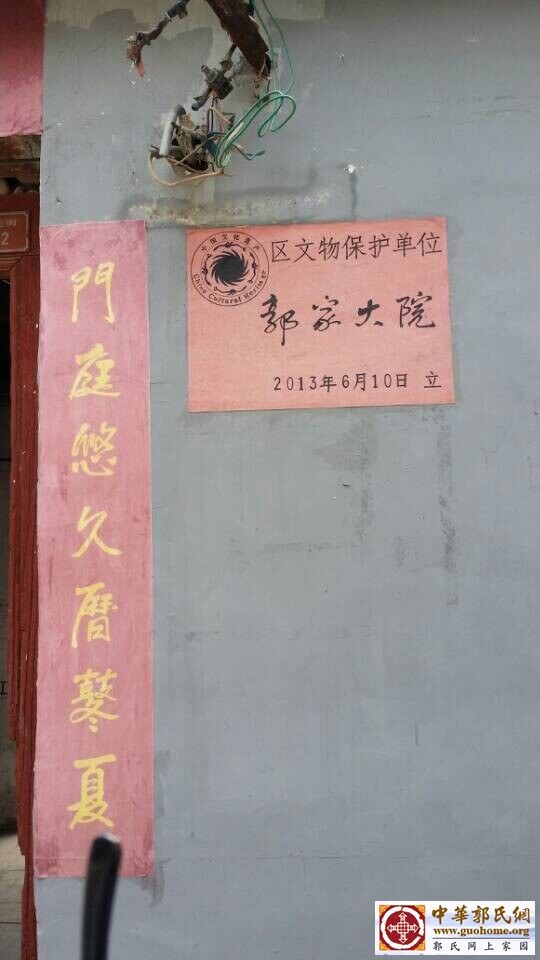 門庭悠久曆鼕夏
2
中国文化遗产
China Cultural Heritage
区文物保护单位
郭家大院
2013年6月10日 立
中華郭氏網
www.guohome.org
郭氏网上家园